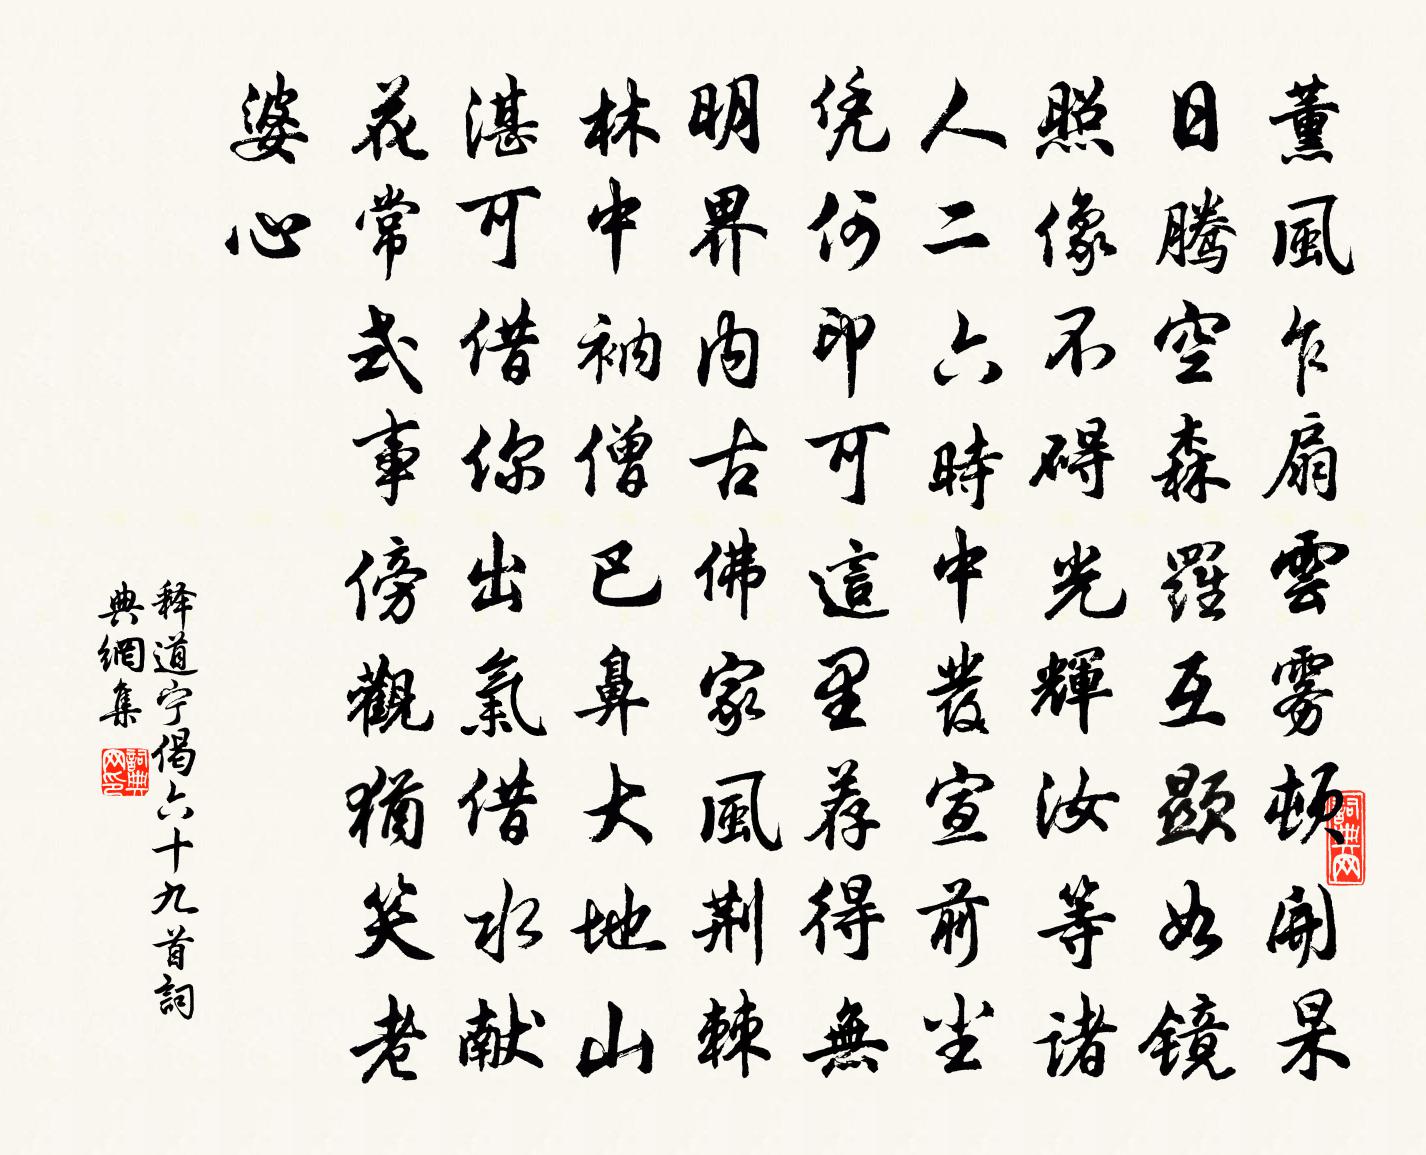 薰風乍扇雲雾頓開杲
日腾空森羅互顯如镜
照像不碍光輝汝等诸
人二六時中發宣前坐
凭何印可這里荐得無
明界内古佛家風荆棘
林中衲僧巴鼻大地山
湛可借你出氣借水献
花常式事傍觀猶笑老
婆心
释道宁偈六十九首詞
典網集
詞典网
詞典网印